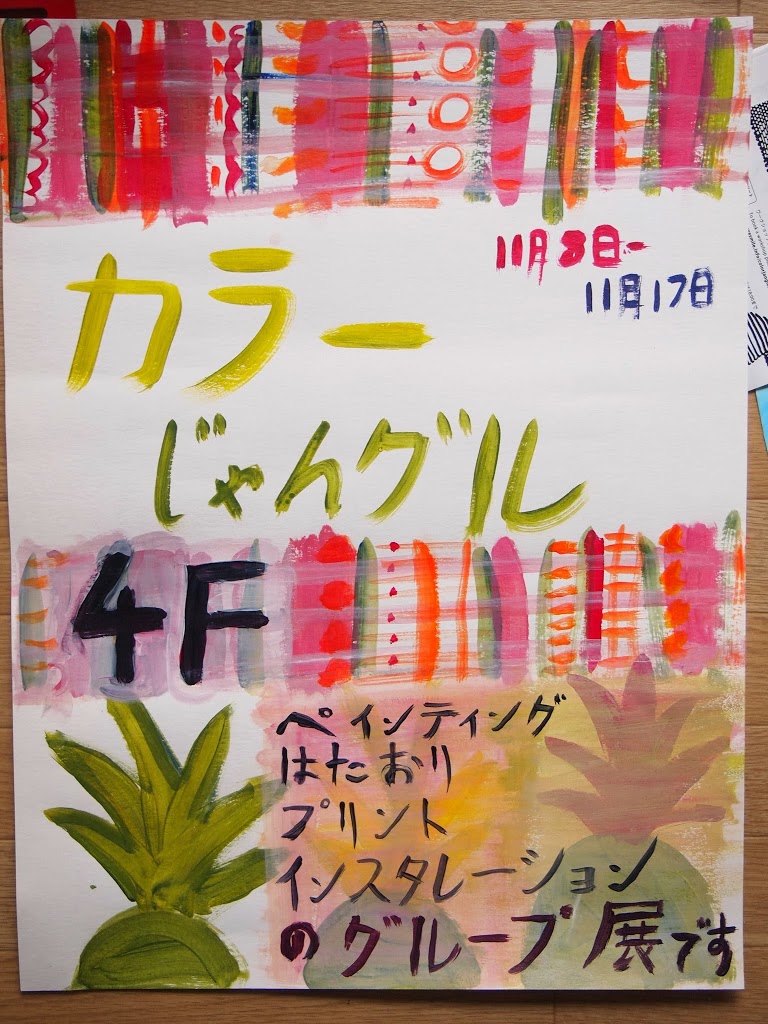 11月8日-
11日17日
カラー
じゃんグル
4F
ペインティング
はたおり
プリント
インスタレーション
のグループ展です